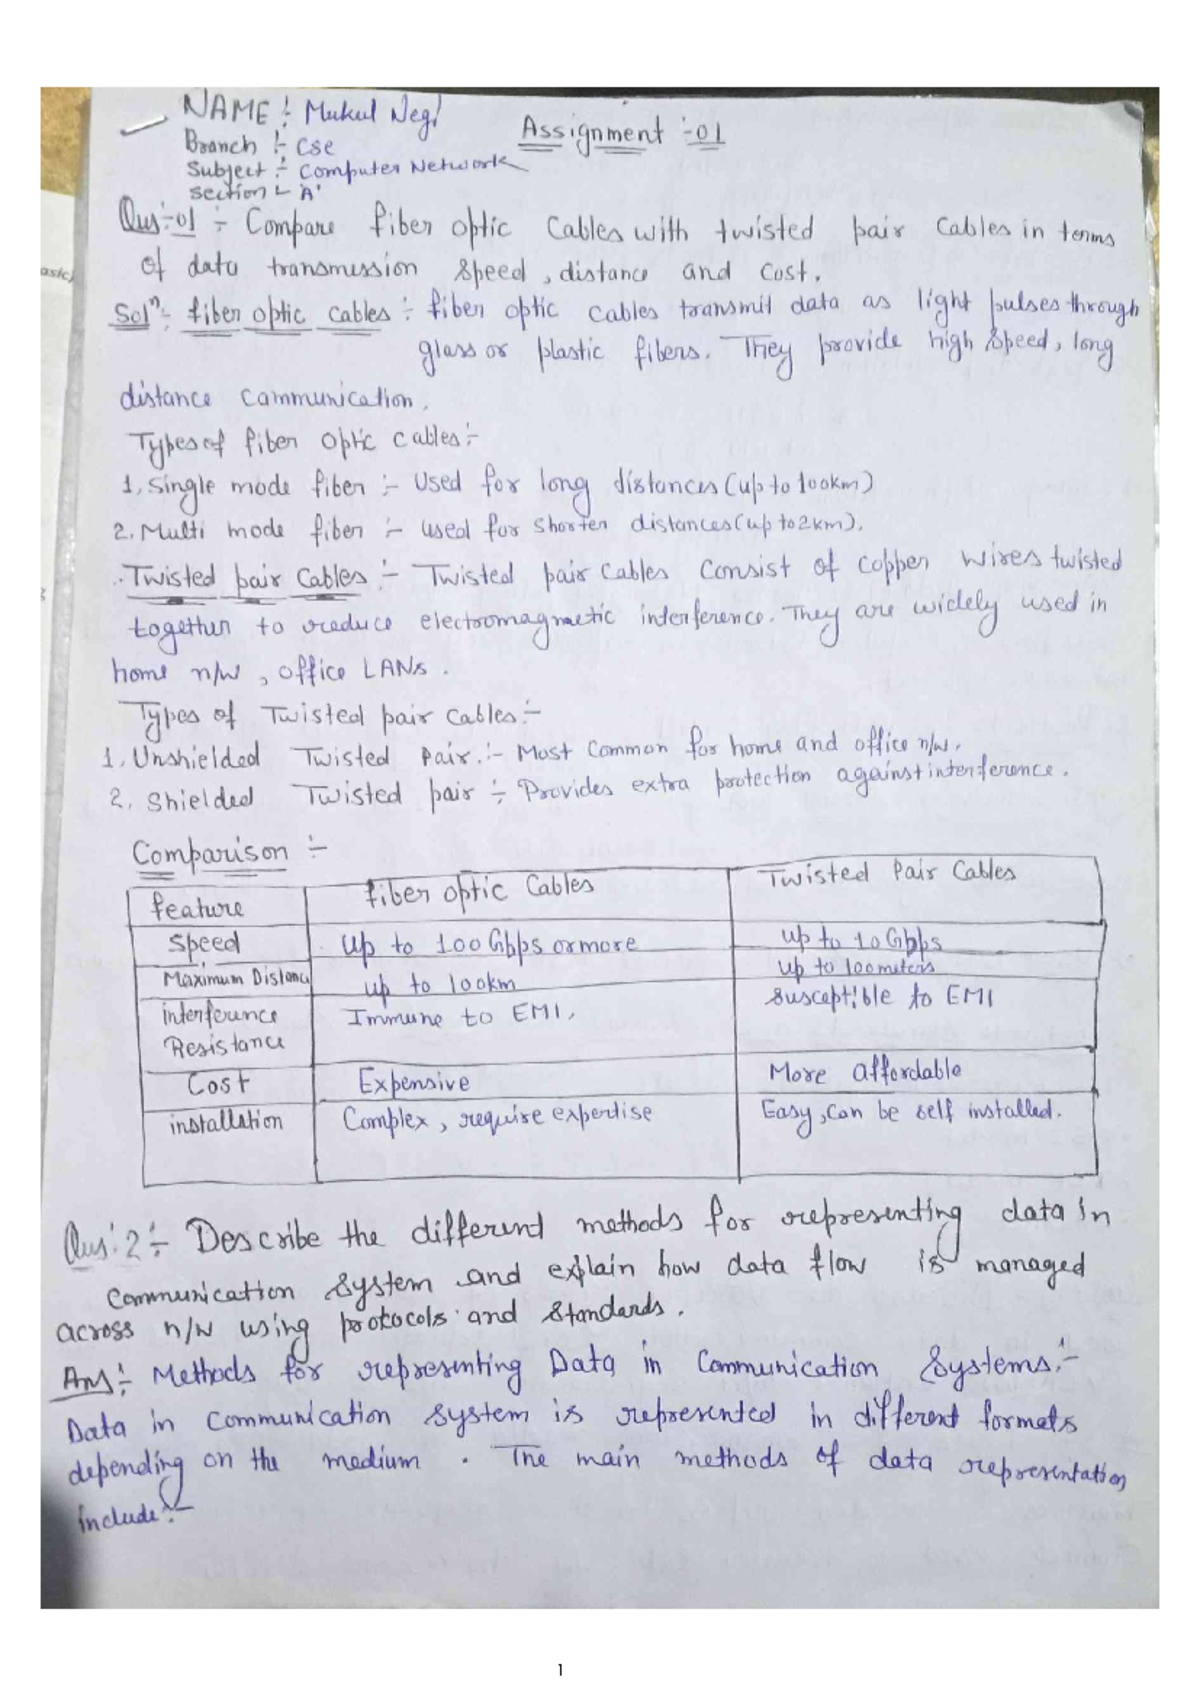 NAME :- Mukul Negi
Assignment :-01
Branch :- CSE
Subject :- Computer Network
Section :- 'A'
Qus:-01 :- Compare fiber optic Cables with twisted pair Cables in terms
of data transmission speed, distance and cost.
asic)
Solⁿ:- fiber optic cables :- fiber optic cables transmit data as light pulses through
glass or plastic fibers. They provide high speed, long
distance communication.
Types of fiber optic cables :-
1. Single mode fiber :- Used for long distances (up to 100km)
2. Multi mode fiber :- used for shorter distances (up to 2km).
Twisted pair cables :- Twisted pair cables consist of copper wires twisted
together to reduce electromagnetic interference. They are widely used in
home n/w, office LANs.
Types of Twisted pair cables :-
1. Unshielded Twisted Pair :- Most common for home and office n/w.
2. Shielded Twisted pair :- Provides extra protection against interference.
Comparison :-
feature fiber optic Cables Twisted Pair Cables
Speed Up to 100 Gbps or more up to 10 Gbps
Maximum Distanc up to 100km up to 100 meters
interference Immune to EMI. Susceptible to EMI
Resistance
Cost Expensive More affordable
installation Complex, require expertise Easy, can be self installed.
Qus:2 :- Describe the different methods for representing data in
communication system and explain how data flow is managed
across n/w using protocols and standards.
Ans :- Methods for representing Data in Communication Systems :-
Data in communication system is represented in different formats
depending on the medium. The main methods of data representation
include :-
1